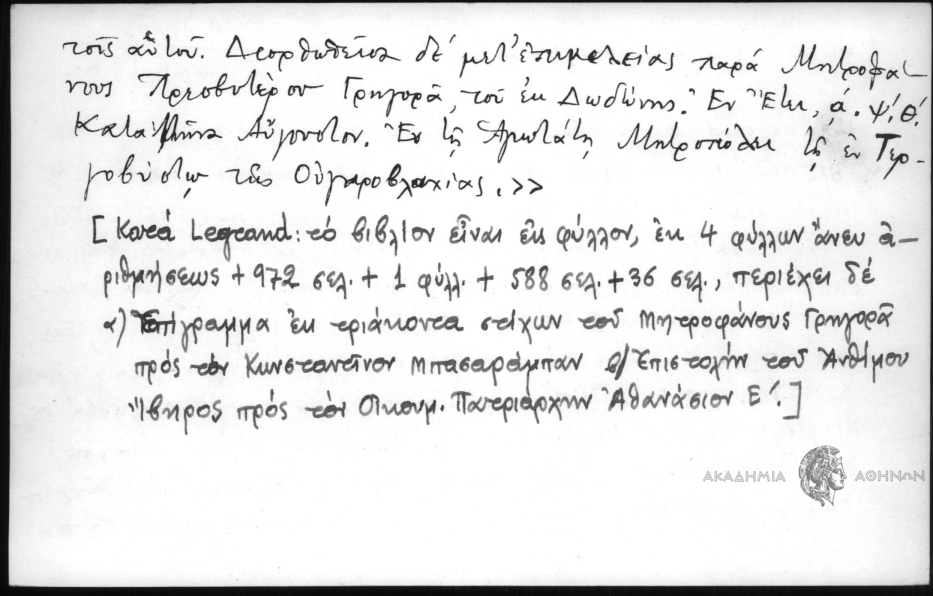 τοῖς αὐτοῦ. Διορθωθεῖσα δέ μετ' ἐπιμελείας παρά Μητροφά-
νους Πρεσβυτέρου Γρηγορᾶ, τοῦ ἐκ Δωδώνης. Ἐν Ἔτει, ά. ψ'. θ'.
Κατὰ Μῆνα Αὔγουστον. Ἐν τῇ Ἁγιωτάτῃ Μητροπόλει τῇ ἐν Τερ-
γοβύστῳ τῆς Οὑγγροβλαχίας.>>
[Κατά Legrand: τό βιβλίον εἶναι εἰς φύλλον, ἐκ 4 φύλλων ἄνευ ἀ-
ριθμήσεως + 972 σελ. + 1 φύλλ. + 588 σελ. + 36 σελ., περιέχει δέ
α) Ἐπίγραμμα ἐκ τριάκοντα στίχων τοῦ Μητροφάνους Γρηγορᾶ
πρός τόν Κωνσταντῖνον Μπασαράμπαν β) Ἐπιστολήν τοῦ Ἀνθίμου
Ἴβηρος πρός τόν Οἰκουμ. Πατριάρχην Ἀθανάσιον Ε'.]
ΑΚΑΔΗΜΙΑ ΑΘΗΝΩΝ